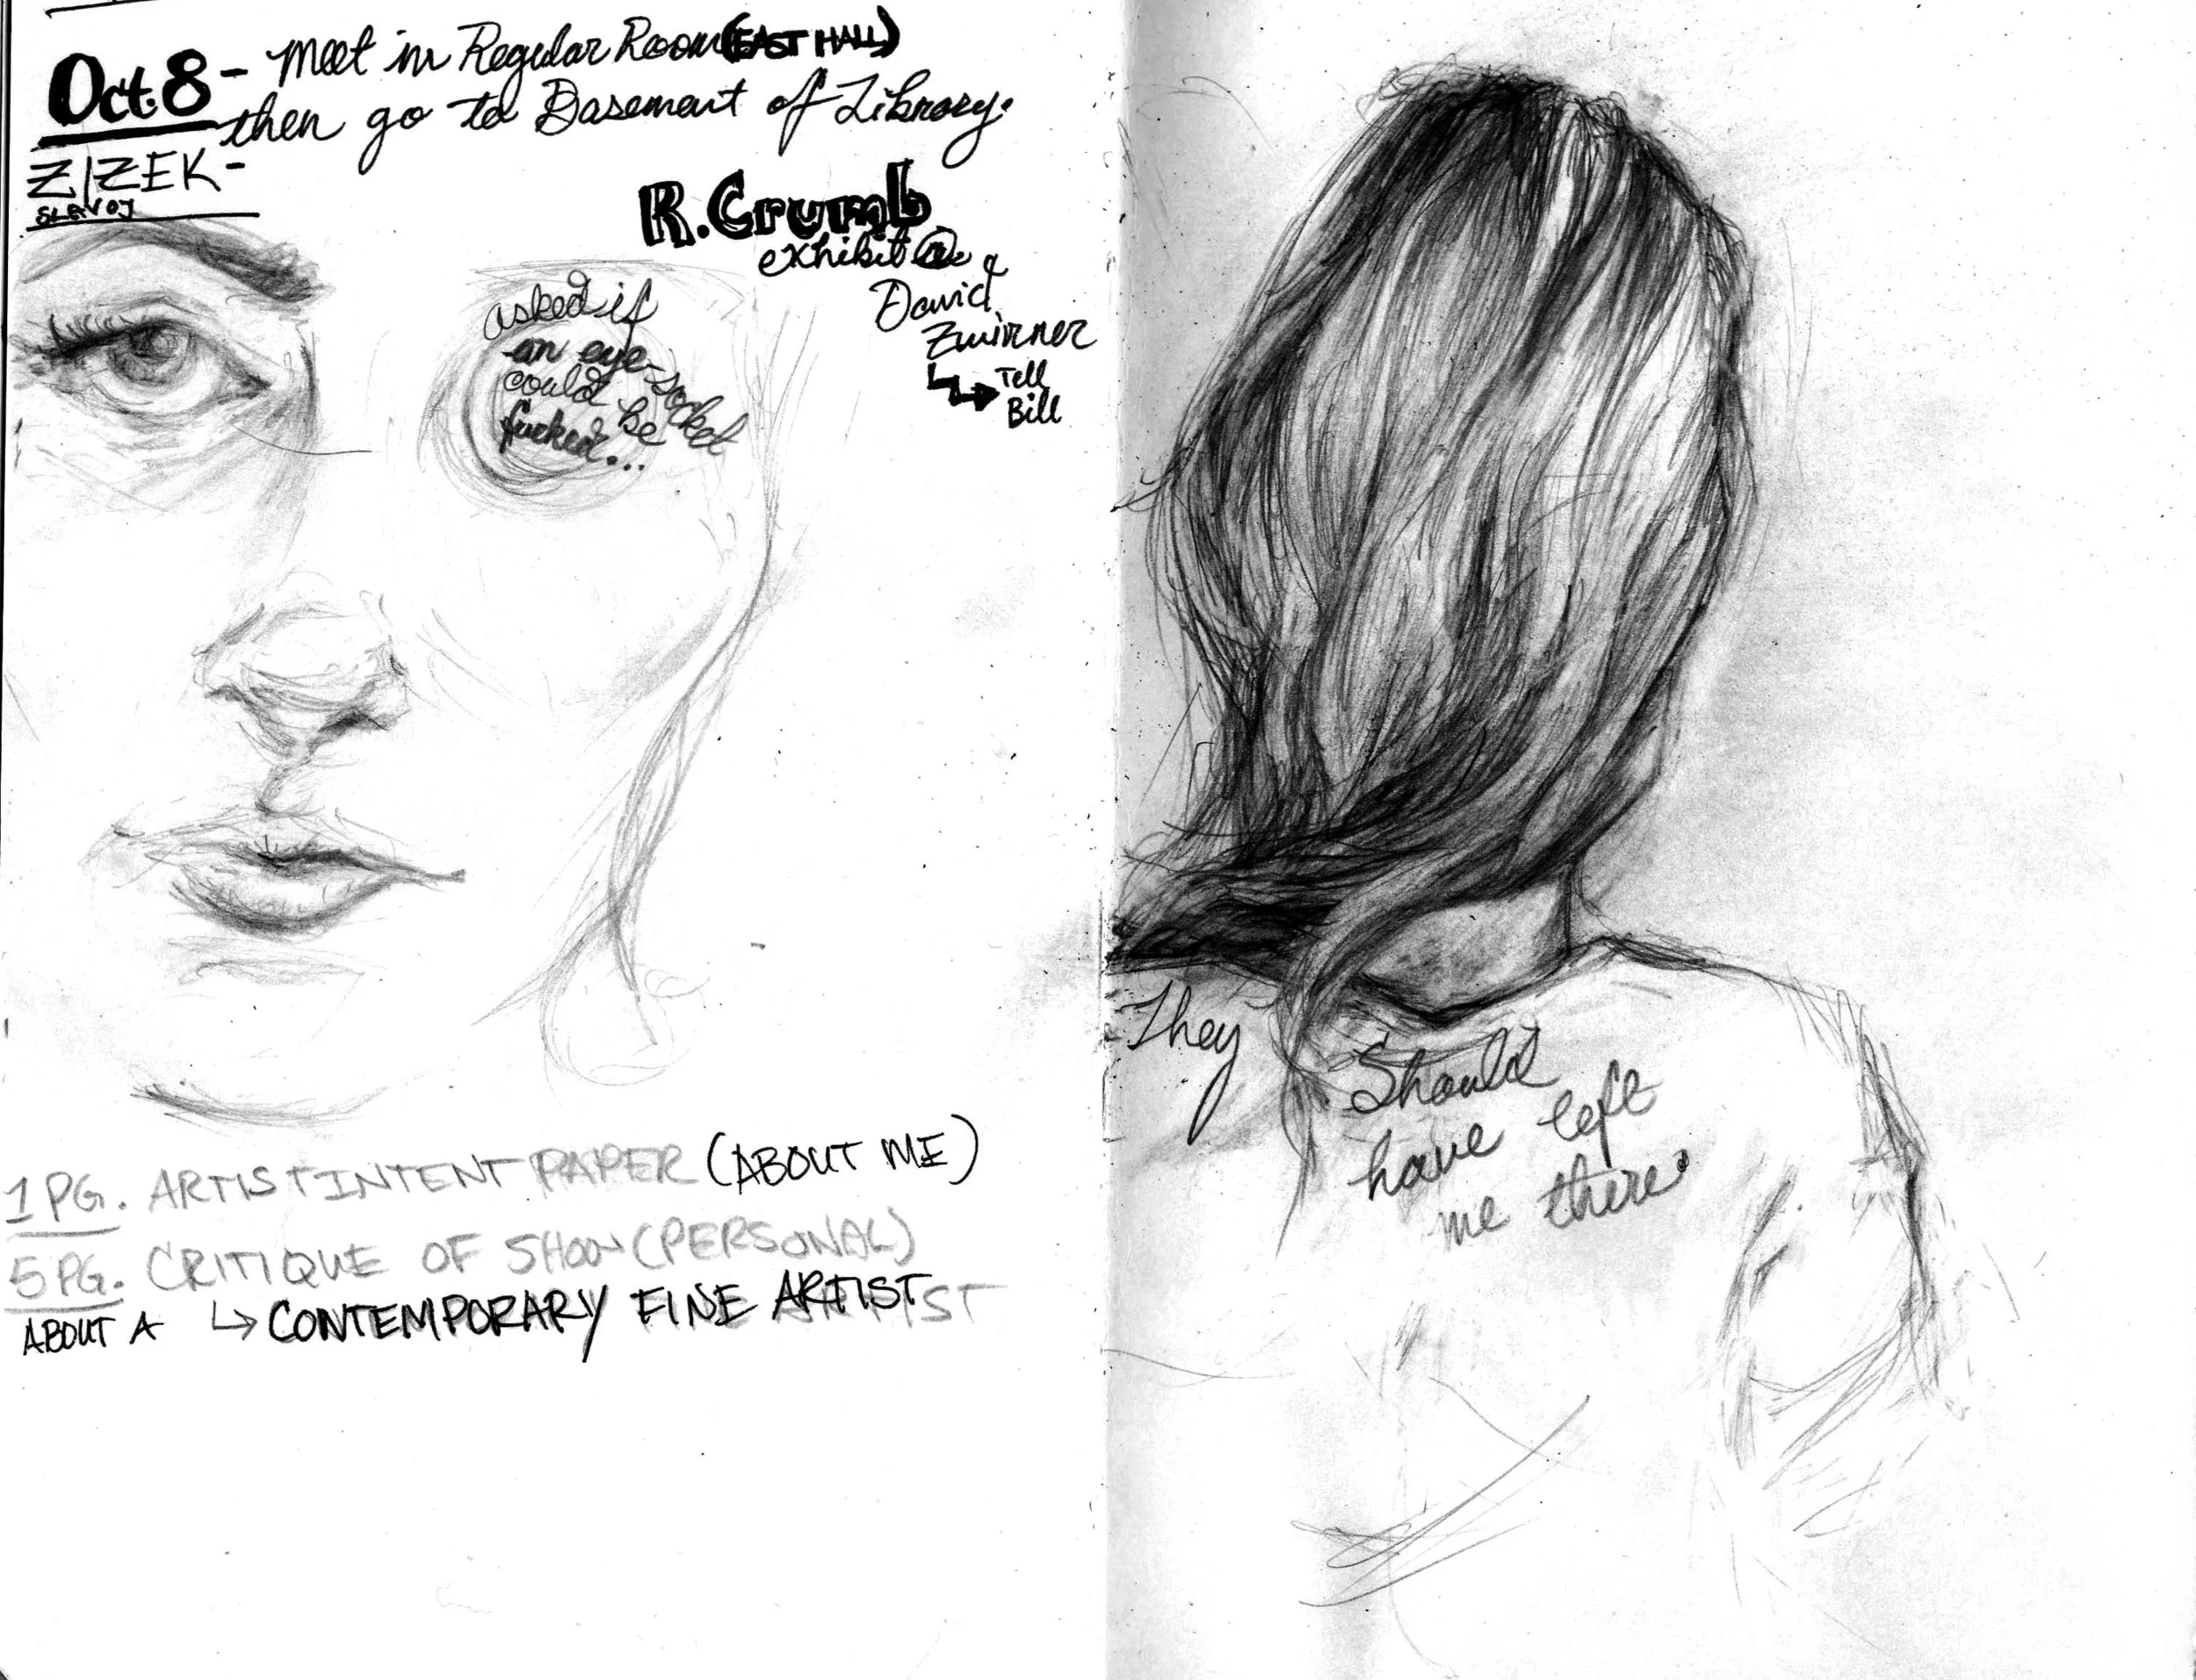 Oct. 8 - Meet in Regular Room (EAST HALL)
then go to Basement of Library.
ZIZEK -
SLAVOJ
R. Crumb
exhibit @
David
Zwirner
↳ Tell
Bill
asked if
an eye-socket
could be
fucked...
1 PG. ARTIST INTENT PAPER (ABOUT ME)
5 PG. CRITIQUE OF SHOW (PERSONAL)
ABOUT A ↳ CONTEMPORARY FINE ARTIST
They
Should
have left
me there.